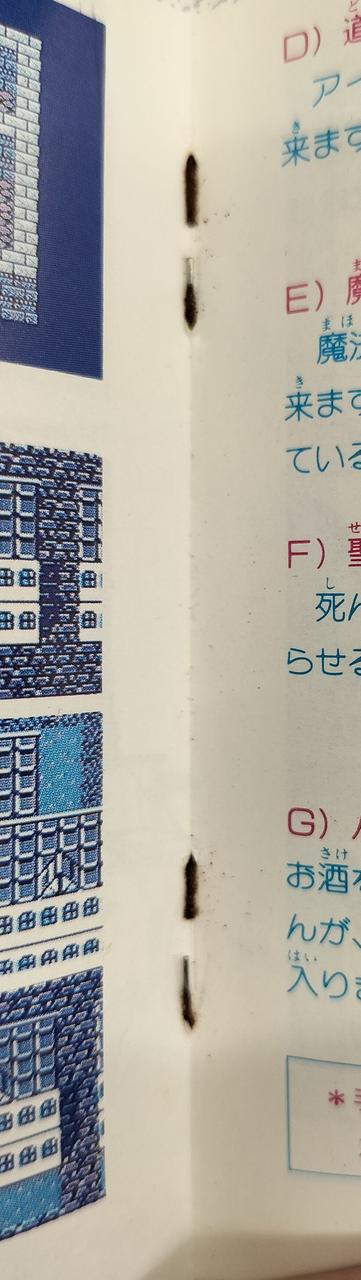 D) 道
アイ
来ます
E) 魔
魔法
来ます
ている
F) 聖
死ん
らせる
G)
お酒を
んが、
入りま
*